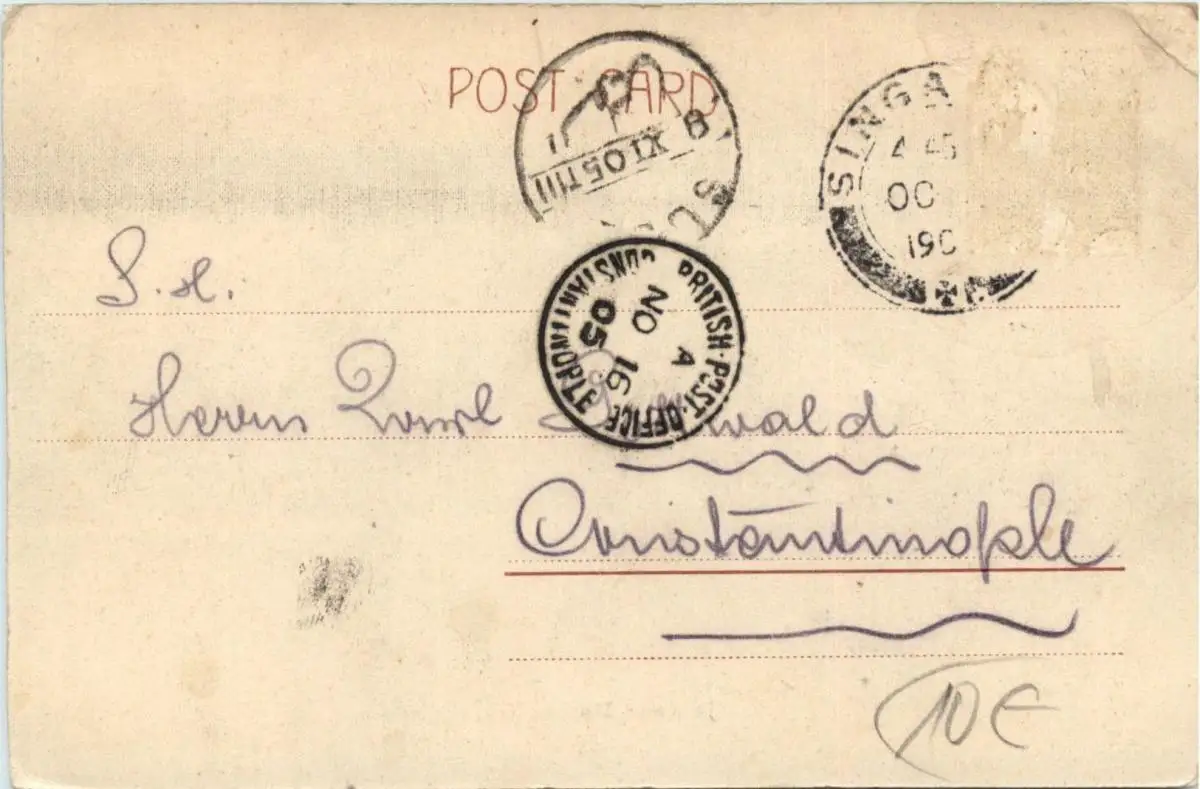 POST CARD
SINGA
4 45
OC
190
XI 05 T III
B
BRITISH·POST·OFFICE CONSTANTINOPLE
A
NO 16
05
Herrn wald
Constantinople
10 €